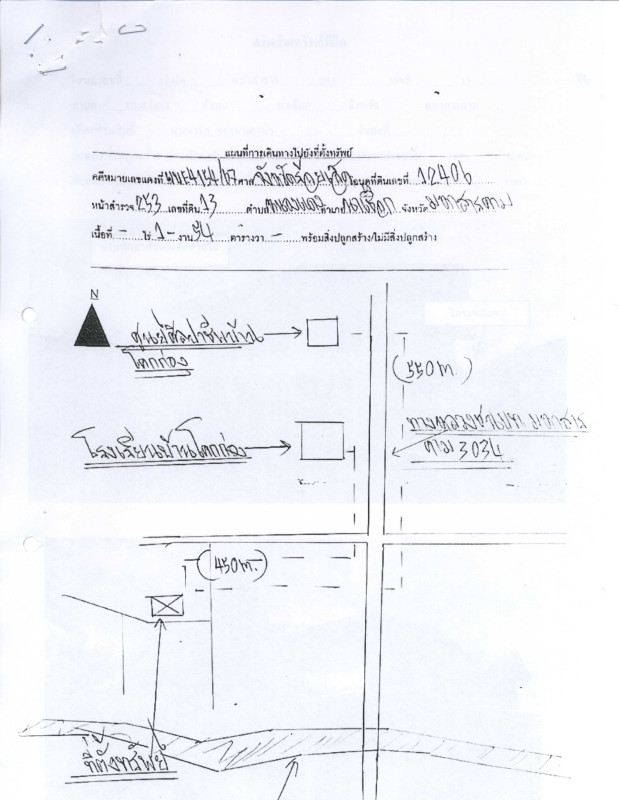 แผนที่การเดินทางไปยังที่ตั้งทรัพย์
คดีหมายเลขแดงที่ ศาล จังหวัดร้อยเอ็ด โฉนดที่ดินเลขที่ 12406
หน้าสำรวจ 253 เลขที่ดิน 13 ตำบล อำเภอ กุดรือก จังหวัด มหาสารคาม
เนื้อที่ - ไร่ 1 - งาน 54 ตารางวา - พร้อมสิ่งปลูกสร้าง/ไม่มีสิ่งปลูกสร้าง
N
ศูนย์ศิลปาชีพบ้าน
โคกก่อง
(550 m.)
ทางหลวงชนบท มหาสาร
คาม 3034
โรงเรียนบ้านโคกก่อง
(450 m.)
ที่ตั้งทรัพย์